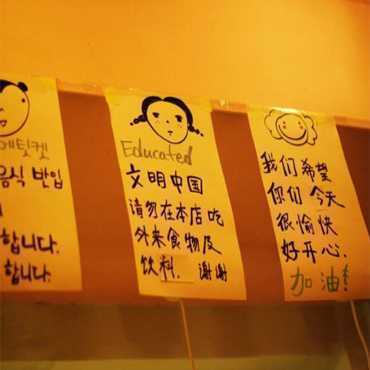 에티켓
음식 반입
합니다.
합니다.
Educated
文明中国
请勿在本店吃
外来食物及
饮料. 谢谢
我们希望
你们 今天
很愉快
好开心.
加油!